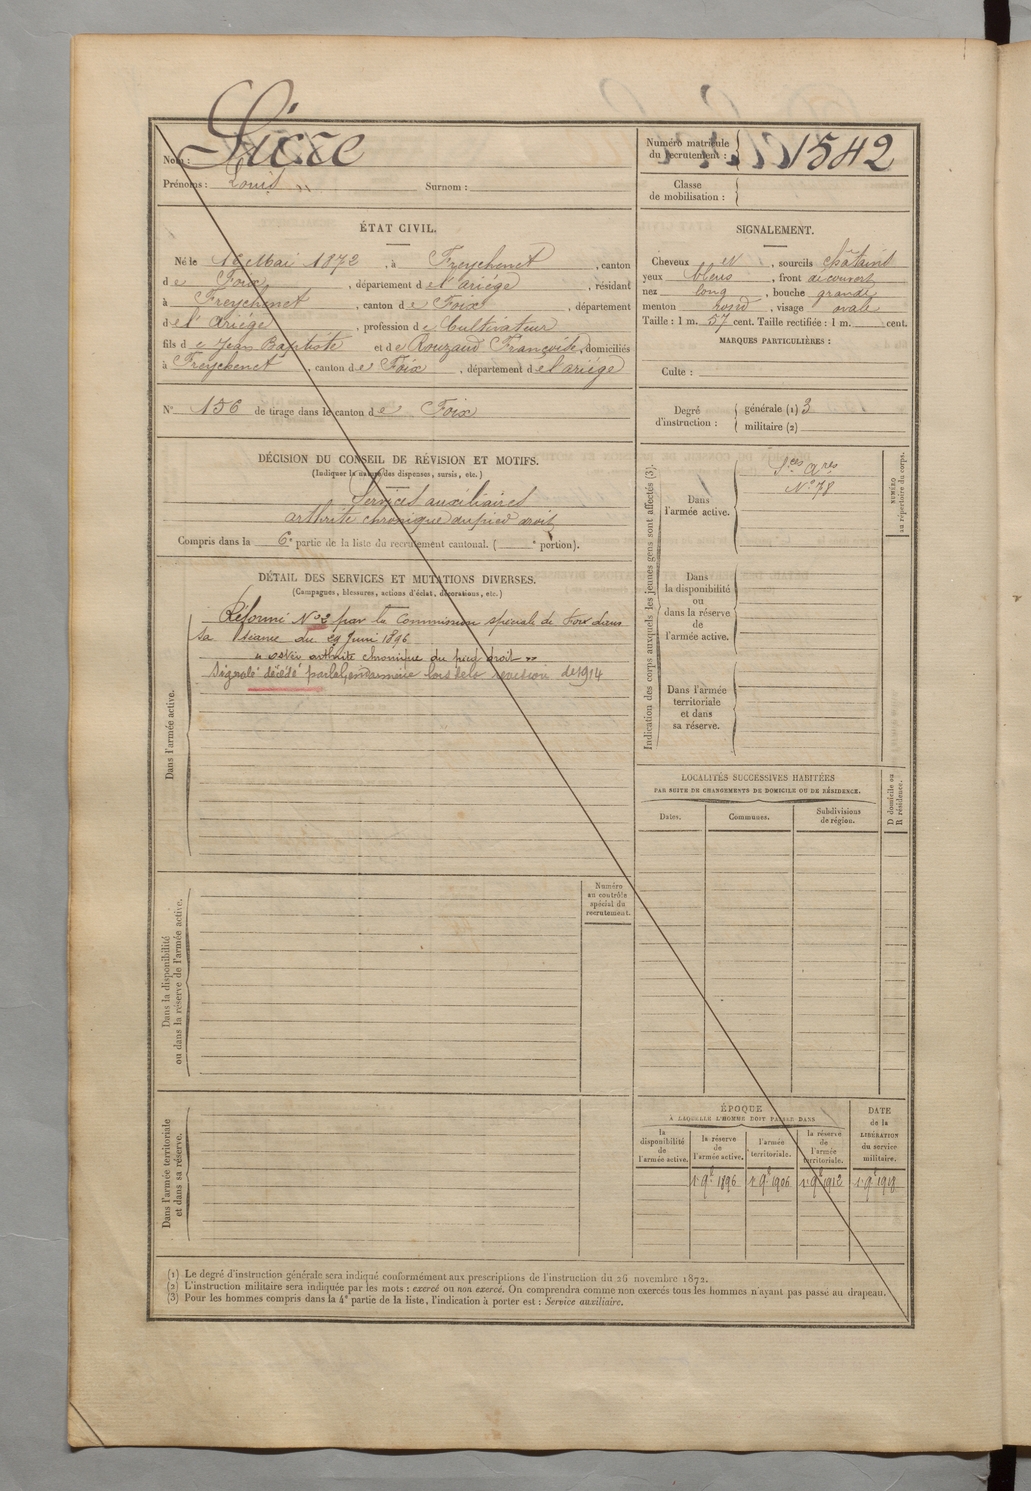 Nom : Sicre
Prénoms : Louis " Surnom :
Numéro matricule du recrutement : 1542
Classe de mobilisation :
ÉTAT CIVIL.
Né le 16 Mai 1872, à Freychenet, canton
de Foix, département de l'Ariége, résidant
à Freychenet, canton de Foix, département
de l'Ariége, profession de Cultivateur
fils de Jean Baptiste et de Rouzaud Françoise, domiciliés
à Freychenet, canton de Foix, département de l'ariége
N° 156 de tirage dans le canton de Foix
SIGNALEMENT.
Cheveux N, sourcils châtains
yeux bleus, front découvert
nez long, bouche grande
menton rond, visage ovale
Taille : 1 m. 57 cent. Taille rectifiée : 1 m. cent.
MARQUES PARTICULIÈRES :
Culte :
Degré d'instruction : générale (1) 3
militaire (2)
DÉCISION DU CONSEIL DE RÉVISION ET MOTIFS.
(Indiquer la nature des dispenses, sursis, etc.)
Services auxiliaires
arthrite chronique du pied droit
Compris dans la 6e partie de la liste du recrutement cantonal. ( e portion).
DÉTAIL DES SERVICES ET MUTATIONS DIVERSES.
(Campagnes, blessures, actions d'éclat, décorations, etc.)
Dans l'armée active.
Réformé N°2 par la Commission spéciale de Foix dans
sa séance du 29 Juin 1896
" ostéo arthrite chronique du pied droit "
Signalé décédé par la Gendarmerie lors de la revision de 1914
Dans la disponibilité
ou dans la réserve de l'armée active.
Numéro
au contrôle
spécial du
recrutement.
Dans l'armée territoriale
et dans sa réserve.
Indication des corps auxquels les jeunes gens sont affectés (3).
NUMÉRO
au répertoire du corps.
Dans
l'armée active.
Sces Ares
N° 78
Dans
la disponibilité
ou
dans la réserve
de
l'armée active.
Dans l'armée
territoriale
et dans
sa réserve.
LOCALITÉS SUCCESSIVES HABITÉES
PAR SUITE DE CHANGEMENTS DE DOMICILE OU DE RÉSIDENCE.
D domicile ou
R résidence.
Dates. Communes. Subdivisions de région.
ÉPOQUE
À LAQUELLE L'HOMME DOIT PASSER DANS
la disponibilité de l'armée active.
la réserve de l'armée active.
l'armée territoriale.
la réserve de l'armée territoriale.
DATE de la LIBÉRATION du service militaire.
1er 9bre 1896 1er 9bre 1906 1er 9bre 1912 1er 9bre 1918
(1) Le degré d'instruction générale sera indiqué conformément aux prescriptions de l'instruction du 26 novembre 1872.
(2) L'instruction militaire sera indiquée par les mots : exercé ou non exercé. On comprendra comme non exercés tous les hommes n'ayant pas passé au drapeau.
(3) Pour les hommes compris dans la 4e partie de la liste, l'indication à porter est : Service auxiliaire.